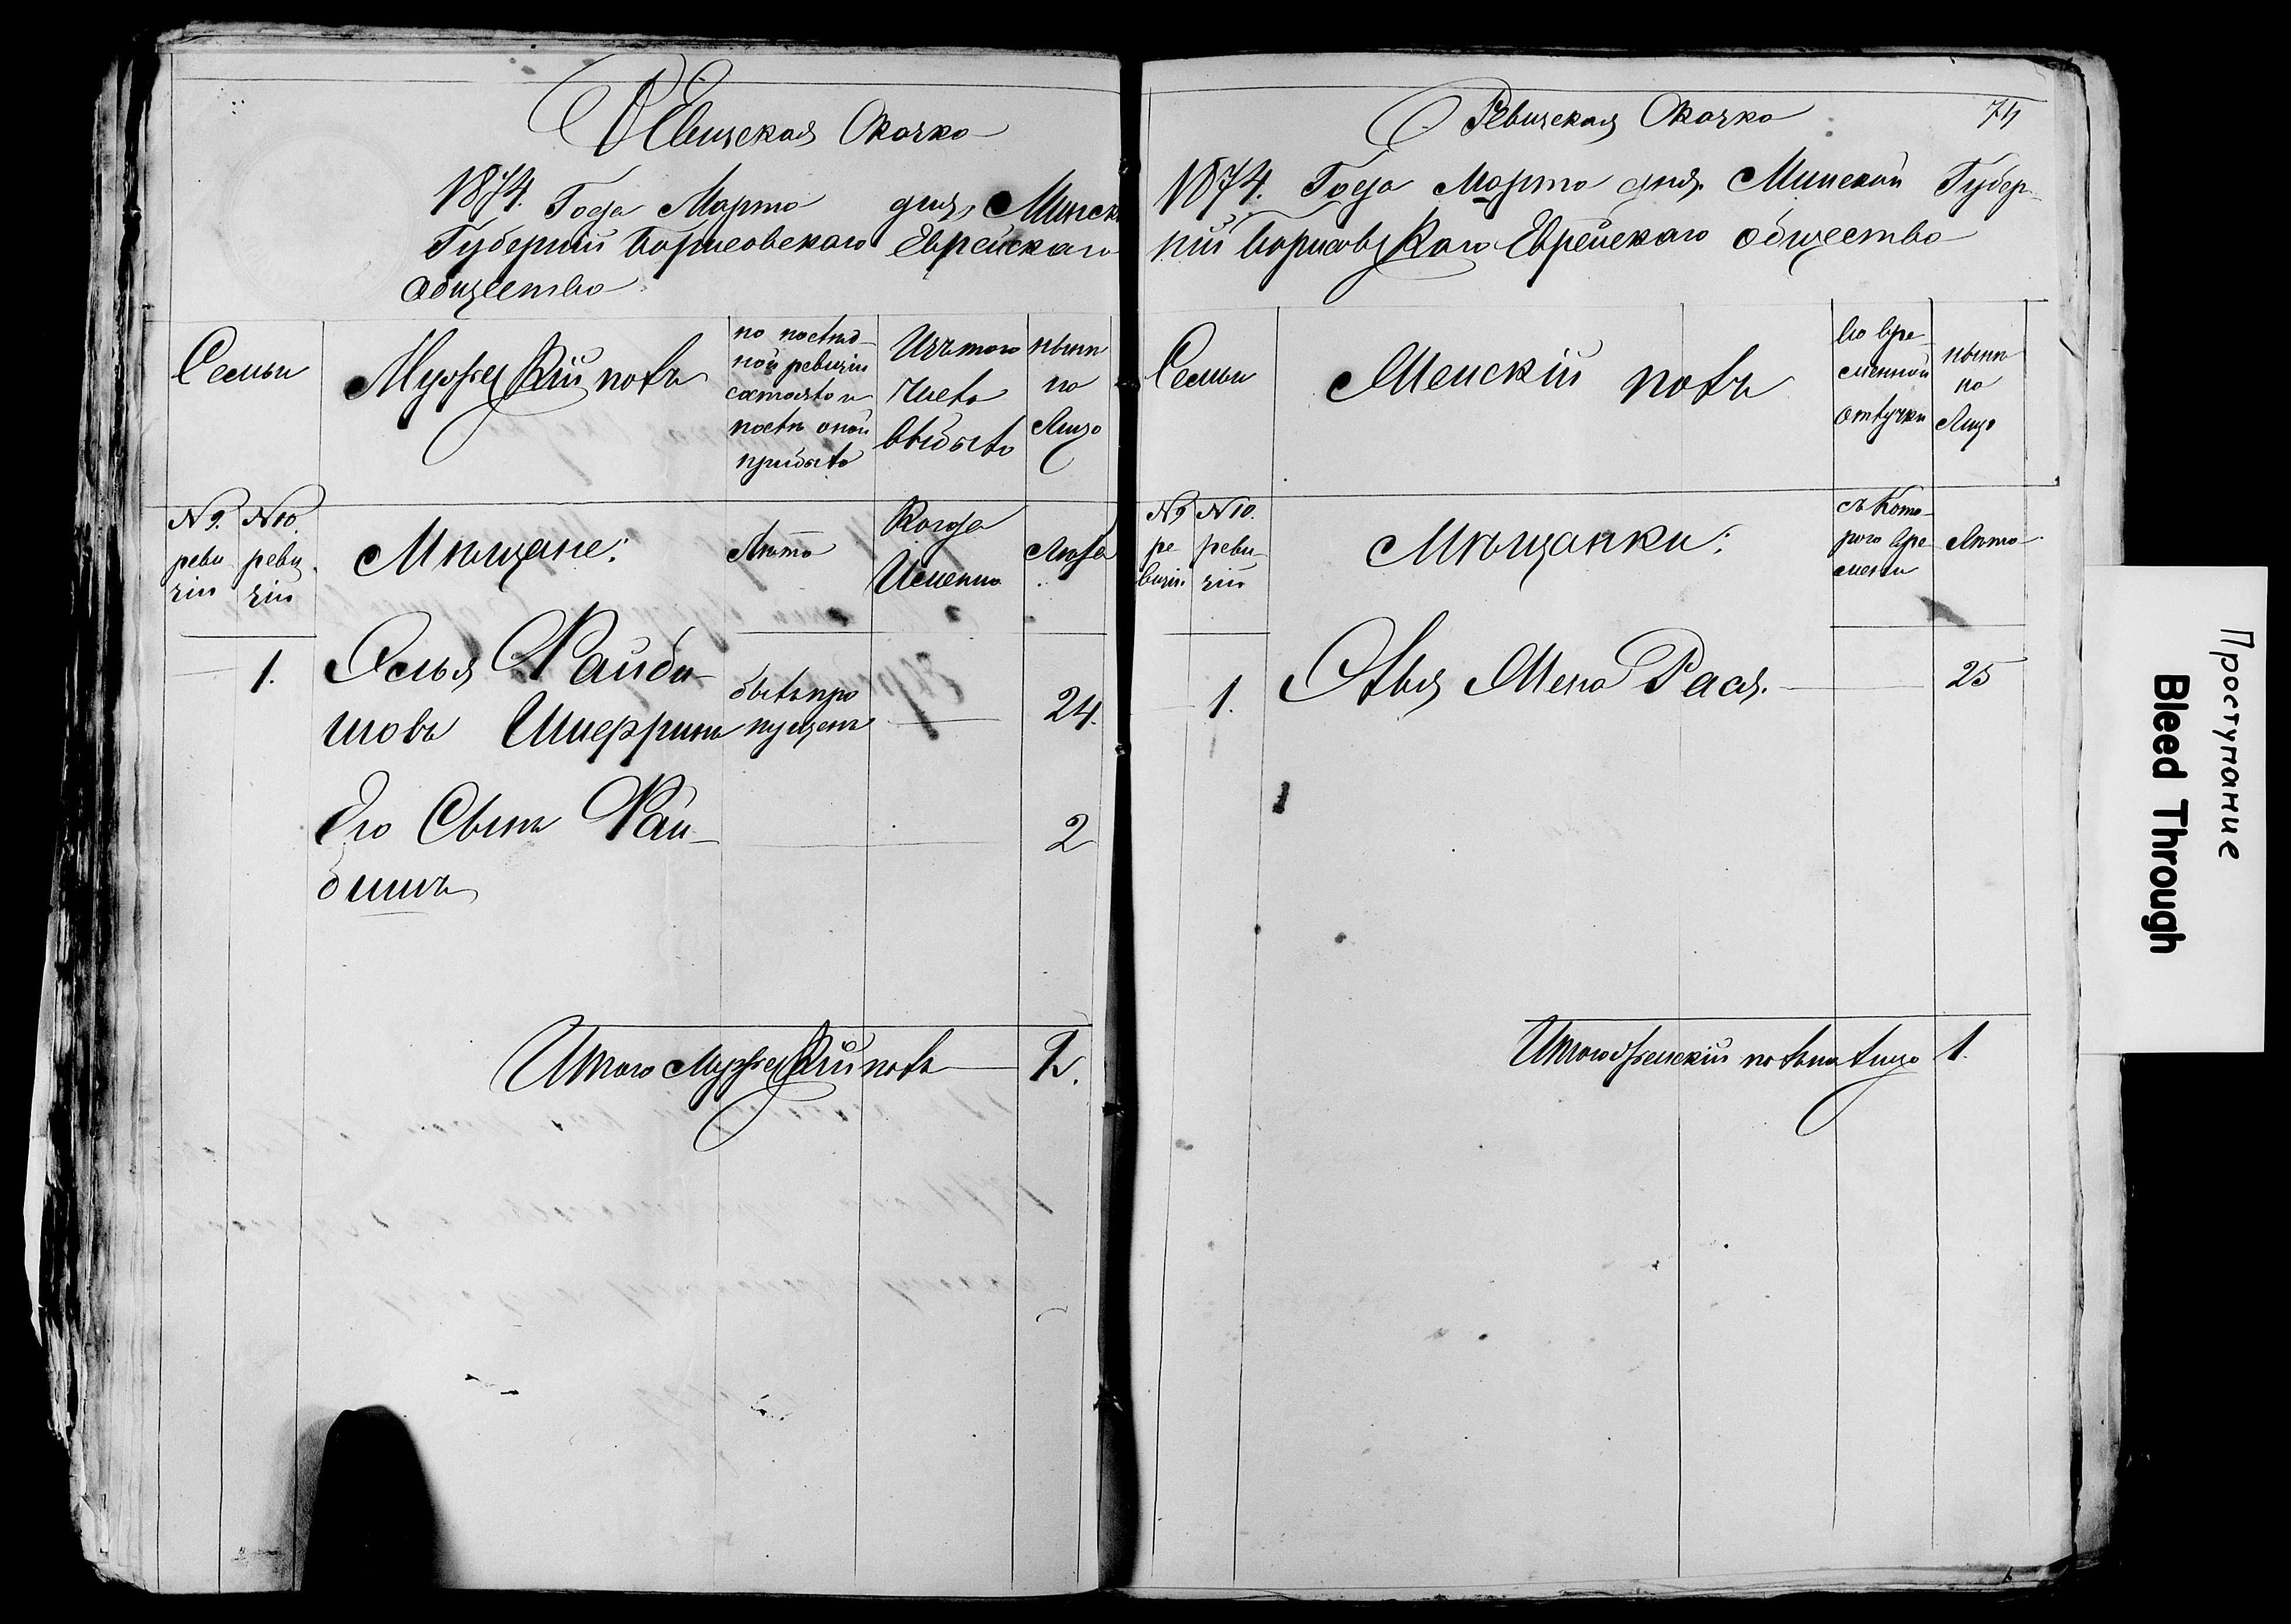 Ревизская Сказка
1874. Года Марта дня, Минск
Губерніи Борисовскаго Еврейскаго
Общества
Семьи
Мужескій полъ
по послед-
ной ревизіи
состояло и
послѣ оной
прибыло
Изъ того
числа
выбыло
нынѣ
на
Лицо
№ 9. № 10.
реви реви
зіи зіи
Мѣщане:
Лѣта
Когда
Именно
Лѣта
1. Селья Файби-
шовъ Шиефринъ былъ про
пущенъ 24.
Его Сынъ Фай- 2
бишъ
Итого Мужескій полъ 2.
Ревизская Сказка 74
1874. Года Марта дня. Минской Губер-
ніи Борисовскаго Еврейскаго общества
Семьи
Женскій полъ
во вре-
менной
отлучки
нынѣ
на
Лицо
№ 9 № 10.
ре реви-
визіи зіи
Мѣщанки:
съ Кото-
раго вре
мени
Лѣта
1. Жена Рася. 25
Итого женскій полъ на лицо 1.
Проступание
Bleed Through